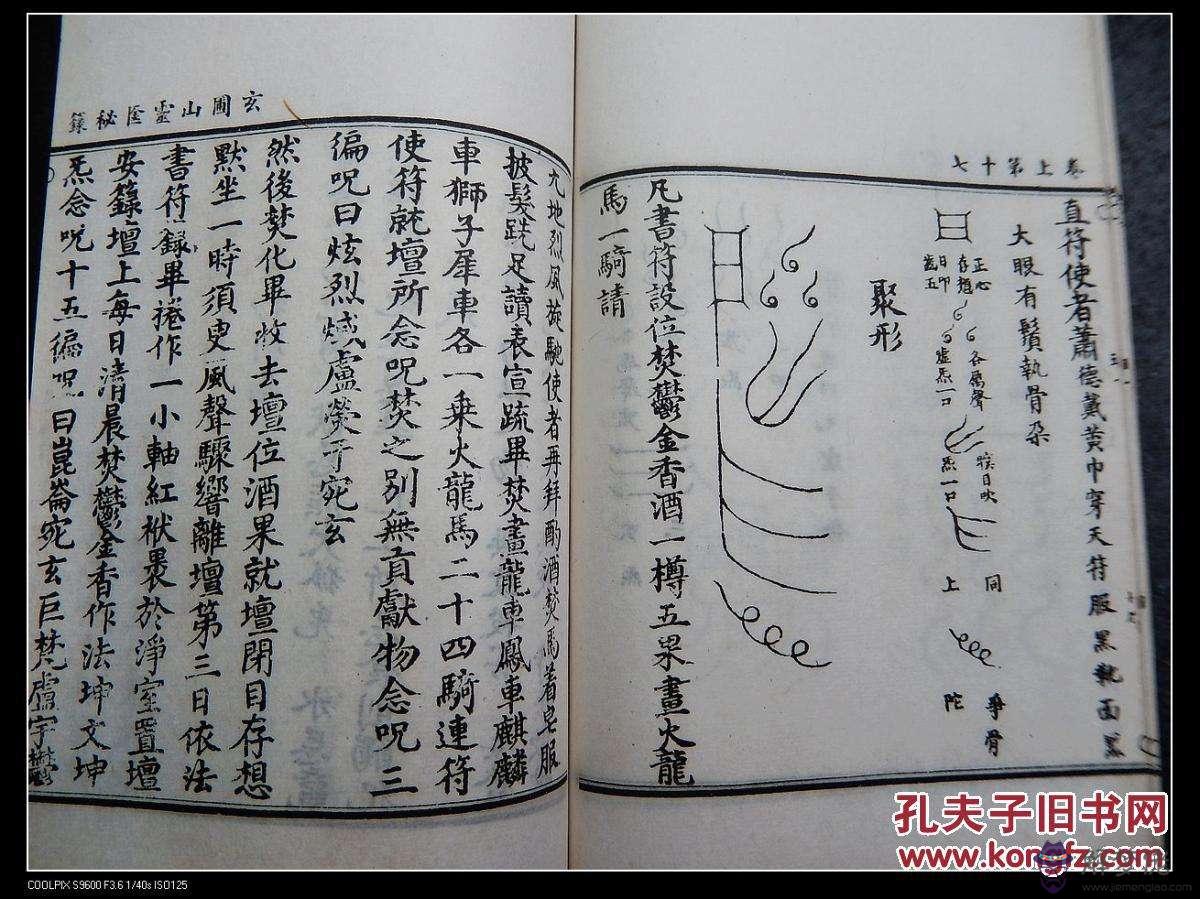 卷上第十七
直符使者蕭德戴黃巾穿天符服黑靴面黑
大眼有鬚執骨朵
正心
存想
日印
各厲聲
虛炁一口
炁一口
同
上
爭骨
陀
聚形
凡書符設位焚鬱金香酒一樽五果畫火龍
馬一騎請
玄圃山靈𨹧秘籙
九地烈風旋馳使者再拜酌酒焚馬着皂服
披髮跣足讀表宣疏畢焚畫龍車鳳車麒麟
車獅子犀車各一乘火龍馬二十四騎連符
使符就壇所念呪焚之別無貢獻物念呪三
徧呪曰炫烈熾盧滎于宛玄
然後焚化畢收去壇位酒果就壇閉目存想
默坐一時須臾風聲驟響離壇第三日依法
書符籙畢捲作一小軸紅袱裹於淨室置壇
安籙壇上每日清晨焚鬱金香作法坤文坤
炁念呪十五徧呪曰崑崙宛玄巨梵盧宇鬱
孔夫子旧书网
www.kongfz.com
www.jiemenglao.com
COOLPIX S9600 F3.6 1/40s ISO125